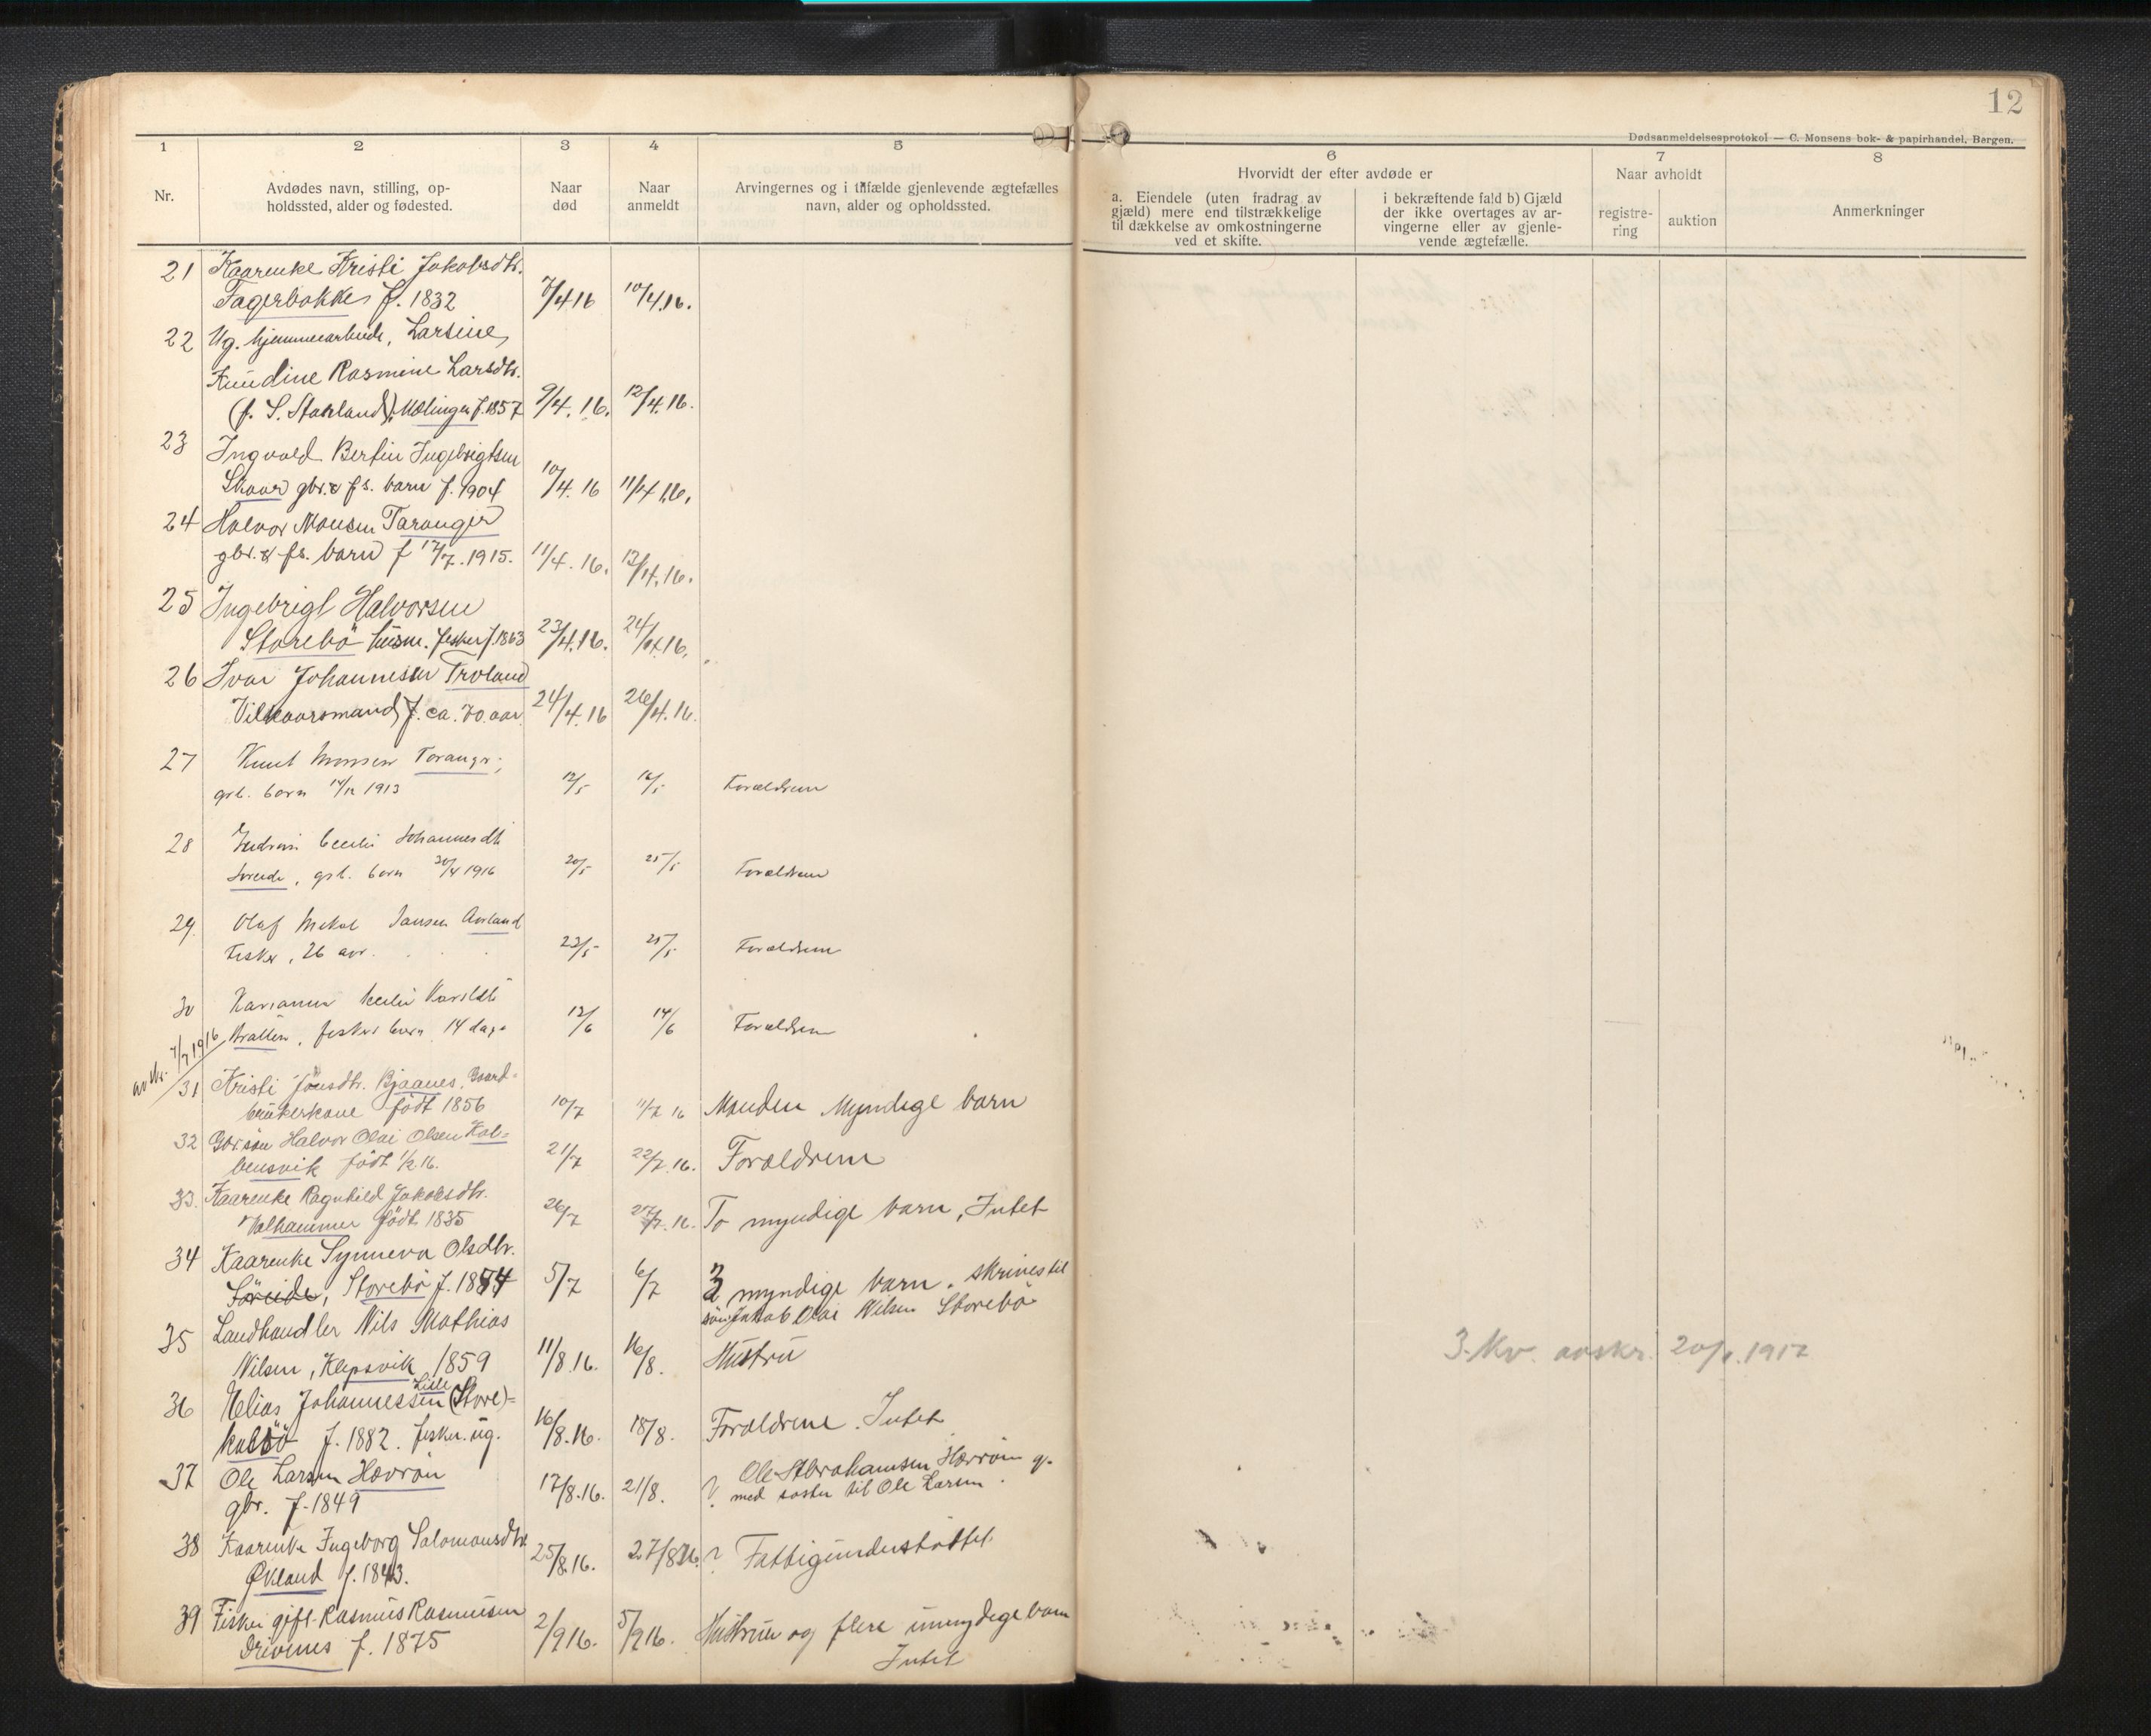 12
Dødsanmeldelsesprotokol — C. Monsens bok- & papirhandel, Bergen.
1 2 3 4 5 6 7 8
Nr.
Avdødes navn, stilling, op-
holdssted, alder og fødested.
Naar
død
Naar
anmeldt
Arvingernes og i tilfælde gjenlevende ægtefælles
navn, alder og opholdssted.
Hvorvidt der efter avdøde er
a. Eiendele (uten fradrag av
gjæld) mere end tilstrækkelige
til dækkelse av omkostningerne
ved et skifte.
i bekræftende fald b) Gjæld
der ikke overtages av ar-
vingerne eller av gjenle-
vende ægtefælle.
Naar avholdt
registre-
ring
auktion
Anmerkninger
21 Kaarenke Kristi Jakobsdtr.
Fagerbakke f. 1832 7/4 16 10/4.16.
22 Ug. hjemmearbeide, Larsine
Knudine Rasmine Larsdtr.
(f. S. Stakland), Møllingen f. 1857 9/4. 16. 12/4.16.
23 Ingvald Bertin Ingebrigtsen
Skaar gbr. & fs. barn f. 1904 10/4. 16 11/4 16.
24 Halvor Monsen Taranger
gbr. & fs. barn f 17/7. 1915. 11/4. 16. 13/4.16.
25 Ingebrigt Halvorsen
Storebö husm. fisker f. 1863 23/4.16. 24/4 16.
26 Ivar Johannesen Troland
Vilkaarsmand f. ca. 70 aar 24/4.16 26/4.16.
27 Knut Monsen Taranger,
grb. barn 14/12 1913 12/5 16/5 Forældrene
28 Cecilie Johannesdtr
grb. barn 30/4 1916 20/5 25/5 Forældrene
29. Olaf Mikal Jansen Avland
Fisker, 26 aar. 22/5 25/5 Forældrene
30 Cecilie
fiskers barn 14 dage 12/6 14/6 Forældrene
avskr. 4/7 1916
31 Kristi Jönsdtr. Bjaanes, Gaard-
brukerkone født 1856 10/7 11/7 16 Manden Myndige barn
32 Gbr. sön Halvor Olai Olsen Kol-
bensvik født 1/2 16. 21/7 22/7.16. Forældrene
33. Kaarenke Ragnhild Jakobsdtr.
Valhammer født 1835 26/7 27/7.16. To myndige barn, Intet
34 Kaarenke Synneva Olsdtr.
Söreide, Storebö f. 1854 5/7 6/7 3 myndige barn. skrives til
sön Jakob Olai Nilsen Storebö
35 Landhandler Nils Mathias
Nilsen, Klepsvik 1859 11/8.16. 16/8. Hustru
3. Kv. avskr. 20/1.1917
36 Helias Johannessen (Store)-
Lille
kalsö f. 1882. fisker. ug. 16/8.16. 18/8. Forældrene. Intet
37 Ole Larsen Hevröin
gbr. f. 1849 17/8.16. 21/8. ? Ole Abrahamsen Hevröin g.
med søster til Ole Larsen.
38 Kaarenke Ingeborg Salomonsdtr.
Økland f. 1843. 25/8.16. 27/8 16. ? Fattigunderstöttet
39 Fisker gift Rasmus Rasmussen
Drivenes f. 1875 2/9 16. 5/9 16. Hustru og flere umyndige barn
Intet